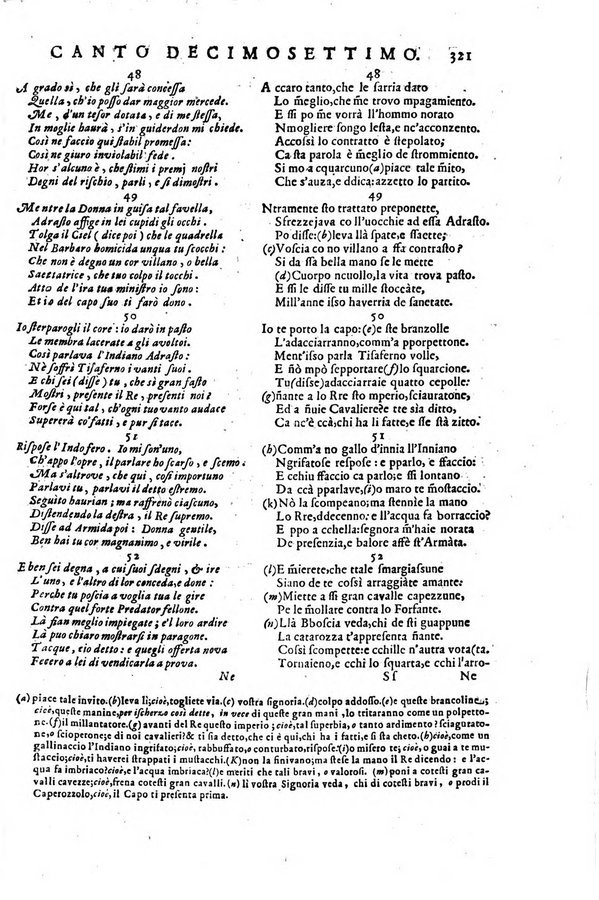 CANTO DECIMOSETTIMO. 321
48
A grado sì, che gli sarà concessa
Quella, ch'io posso dar maggior mercede.
Me, d'un tesor dotata, e di me stessa,
In moglie haurà, s'in guiderdon mi chiede.
Così ne faccio qui stabil promessa:
Così ne giuro inviolabil fede.
Hor s'alcuno è, che stimi i premj nostri
Degni del rischio, parli, e si dimostri.
49
Mentre la Donna in guisa tal favella,
Adrasto affige in lei cupidi gli occhi.
Tolga il Ciel (dice poi) che le quadrella
Nel Barbaro homicida unqua tu scocchi:
Che non è degno un cor villano, o bella
Saettatrice, che tuo colpo il tocchi.
Atto de l'ira tua ministro io sono:
Et io del capo suo ti farò dono.
50
Io sterparogli il core: io darò in pasto
Le membra lacerate a gli avoltoi.
Così parlava l'Indiano Adrasto:
Nè soffrì Tisaferno i vanti suoi.
E chi sei (disse) tu, che sì gran fasto
Mostri, presente il Re, presenti noi?
Forse è qui tal, ch'ogni tuo vanto audace
Supererà co'fatti, e pur si tace.
51
Rispose l'Indo fero. Io mi son'uno,
Ch'appo l'opre, il parlare ho scarso, e scemo.
Ma s'altrove, che qui, così importuno
Parlavi tu, parlavi il detto estremo.
Seguito haurian; ma raffrenò ciascuno,
Distendendo la destra, il Re supremo.
Disse ad Armida poi: Donna gentile,
Ben hai tu cor magnanimo, e virile.
52
E ben sei degna, a cui suoi sdegni, & ire
L'uno, e l'altro di lor conceda, e done:
Perche tu poscia a voglia tua le gire
Contra quel forte Predator fellone.
Là sian meglio impiegate; e'l loro ardire
Là può chiaro mostrarsi in paragone.
Tacque, ciò detto: e quegli offerta nova
Fecero a lei di vendicarla a prova.
Ne
48
A ccaro tanto, che le sarria dato
Lo m̃eglio, che me trovo mpagamiento.
E ssi po m̃e vorrà ll'hommo norato
Nmogliere songo lesta, e n'acconzento.
Accossì lo contratto è stepolato;
Ca sta parola è m̃eglio de strommiento.
Si mo squarcuno (a) piace tale m̃ito,
Che s'auza, e ddica: azzetto lo partito.
49
Ntramente sto trattato preponette,
Sfrezzejava co ll'uocchie ad essa Adrasto.
Po disse: (b) leva llà spate, e ssaette;
(c) Voscia co no villano a ssa contrasto?
Si da ssa bella mano se le mette
(d) Cuorpo ncuollo, la vita trova pasto.
E ssi le disse tu mille stoccàte,
Mill'anne isso haverria de sanetate.
50
Io te porto la capo: (e) e ste branzolle
L'adacciarranno, comm'a pporpettone.
Ment'isso parla Tisaferno volle,
E ñò mpò sepportare (f) lo squarcione.
Tu (disse) adacciarraie quatto cepolle:
(g) ñante a lo Rre sto mperio, sciauratone,
Ed a ñuie Cavaliere? e tte sìa ditto,
Ca nc'è ccà, chi ha li fatte; e sse stà zitto.
51
(h) Comm'a no gallo d'innia ll'Inniano
Ngrifatose respose: e pparlo, e ffaccio:
E cchiu ffaccio ca parlo; e ssi llontano
Da ccà pparlave, (i) o maro te mostaccio.
(k) Nò la scompeano; ma stennie la mano
Lo Rre, ddecenno: e ll'acqua fa borraccio?
E ppo a cchella: segnora m'haie norata
De presenzia, e balore affè st'Armàta.
52
(l) E mierete, che ttale smargiassune
Siano de te cossì arraggiàte amante:
(m) Miette a ssi gran cavalle capezzune,
Pe le mollare contra lo Forfante.
(n) Llà Bboscia veda, chi de sti guappune
La catarozza t'appresenta ñante.
Cossì scompette: e cchille n'autra vota (ta.
Tornaieno, e cchi lo squarta, e cchi l'arro-
Sf Ne
(a) piace tale invito. (b) leva lì; cioè, togliete via. (c) vostra signoria. (d) colpo addosso. (e) e queste brancoline;
cioè, queste manine, per ischerzo così dette, in vece di queste gran mani, lo tritaranno come un polpetto-
ne. (f) il millantatore. (g) avanti del Re questo imperio; cioè, tal superbia, o tanto ardimento? sciagurato-
ne, o scioperone; e di noi cavalieri? & ti sia detto, che ci è quì, chi ha i fatti, e si stà zitto. (h) cioè, come un
gallinaccio l'Indiano ingrifato; cioè, rabbuffato, o conturbato, rispose: (i) o misero te; cioè, o guai a te mu-
staccio; cioè, ti haverei strappati i mustacchi. (K) non la finivano; ma stese la mano il Re dicendo: e l'ac-
qua fa imbriaco? cioè, e l'acqua imbriaca? (l) e meriti che tali bravi, o valorosi. (m) poni a cotesti gran ca-
valli cavezze; cioè, frena cotesti gran cavalli. (n) lì vostra Signoria veda, chi di cotesti bravi, o prodi il
Caperozzolo, cioè, il Capo ti presenta prima.